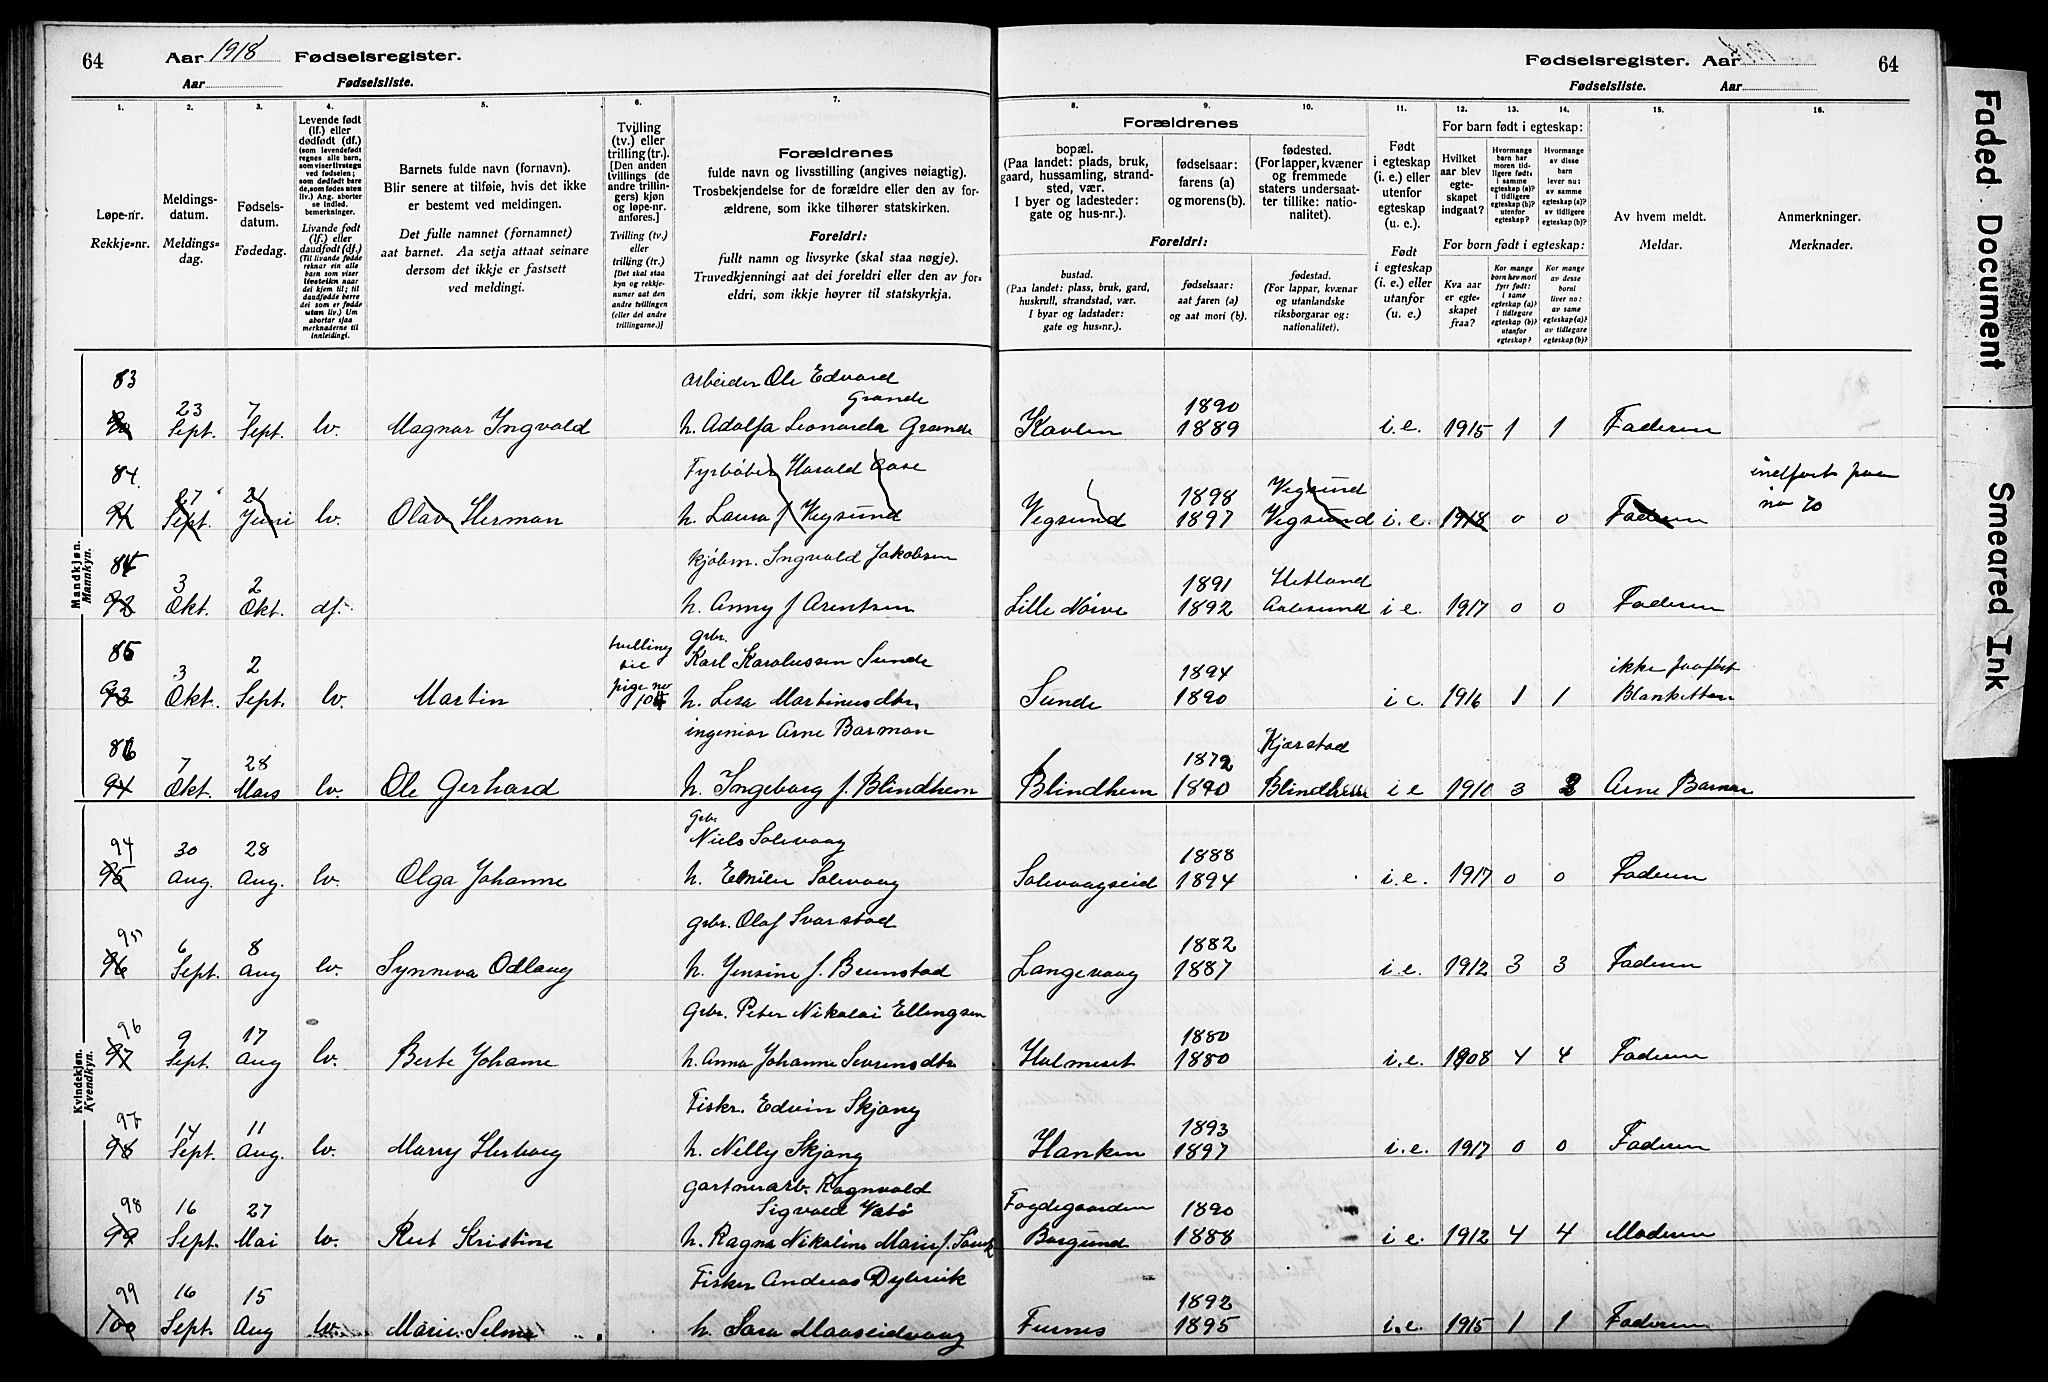 64 Aar 1918 Fødselsregister.
Aar Fødselsliste.
Fødselsregister. Aar 64
Fødselsliste. Aar
1. 2. 3. 4. 5. 6. 7. 8. 9. 10. 11. 12. 13. 14. 15. 16.
Løpe-nr.
Rekkje-nr.
Meldings-
datum.
Meldings-
dag.
Fødsels-
datum.
Fødedag.
Levende født
(lf.) eller
dødfødt (df.)
(som levendefødt
regnes alle barn,
som viser livstegn
ved fødselen;
som dødfødt bare
de, som fødes uten
liv.) Ang. aborter
se indled.
bemerkninger.
Livande fødd
(lf.) eller
daudfødt (df.)
(Til livande fødde
reknar ein alle
barn som viser
livsteikn naar
dei kjem til; til
daudfødde berre
dei som er fødde
utan liv.) Um
abortar sjaa
merknaderne til
innleidingi.
Barnets fulde navn (fornavn).
Blir senere at tilføie, hvis det ikke
er bestemt ved meldingen.
Det fulle namnet (fornamnet)
aat barnet. Aa setja attaat seinare
dersom det ikkje er fastsett
ved meldingi.
Tvilling
(tv.) eller
trilling (tr.).
[Den anden
tvillings (de
andre trillin-
gers) kjøn
og løpe-nr.
anføres.]
Tvilling (tv.)
eller
trilling (tr.)
[Det skal staa
kyn og rekkje-
numer aat den
andre tvillingen
(eller dei andre
trillingarne.)]
Forældrenes
fulde navn og livsstilling (angives nøiagtig).
Trosbekjendelse for de forældre eller den av for-
ældrene, som ikke tilhører statskirken.
Foreldri:
fullt namn og livsyrke (skal staa nøgje).
Truvedkjenningi aat dei foreldri eller den av for-
eldri, som ikkje høyrer til statskyrkja.
Forældrenes
bopæl.
(Paa landet: plads, bruk,
gaard, hussamling, strand-
sted, vær.
I byer og ladesteder:
gate og hus-nr.).
fødselsaar:
farens (a)
og morens (b).
fødested.
(For lapper, kvæner
og fremmede
staters undersaat-
ter tillike: natio-
nalitet).
Foreldri:
bustad.
(Paa landet: plass, bruk, gard,
huskrull, strandstad, vær.
I byar og ladstader:
gate og hus-nr.).
fødselsaar:
aat faren (a)
og aat mori (b).
fødestad.
(For lappar, kvænar
og utanlandske
riksborgarar og:
nationalitet).
Født
i egteskap
(i. e.) eller
utenfor
egteskap
(u. e.).
Født
i egteskap
(i. e.) eller
utanfor
(u. e.)
For barn født i egteskap:
Hvilket
aar blev
egte-
skapet
indgaat?
Hvormange
barn har
moren tid-
ligere født:
i samme
egteskap (a)?
i tidligere
egteskap (b)?
utenfor
egteskap?
Hvormange
av disse
barn
lever nu:
av samme
egteskap (a)?
av tidligere
egteskap (b)?
For born født i egteskap:
Kva aar
er egte-
skapet
fraa?
Kor mange
born hev mori
fyrr født:
i same
egteskap (a)?
i tidlegare
egteskap (b)?
utanfor
egteskap?
Kor mange
av desse
born
liver no:
av same
egteskap (a)?
av tidlegare
egteskap (b)?
Av hvem meldt.
Meldar.
Anmerkninger.
Merknader.
Mandkjøn.
Mannkyn.
83 arbeider Ole Edvard
Grande
23 7 1890
Sept. Sept. lv. Magnar Ingvald h. Adolfa Leonarda Grande Kavlen 1889 i.e. 1915 1 1 Faderen
84. Fyrbøter Harald Aase indført paa
27 21 1898 Vegsund no 70
91 Sept. Juni lv. Olav Herman h. Laura f Vegsund Vegsund 1897 Vegsund i.e. 1918 0 0 Faderen
84 kjøbm. Ingvald Jakobsen
3 2 1891 Hetland
92 Okt. Okt. df. h. Anny f Arentsen Lille Nørve 1892 Aalesund i e. 1917 0 0 Faderen
85 tvilling til grbr.
Karl Karolussen Sunde ikke paaført
3 2 1894
93 Okt. Sept. lv. Martin pige no 104 h. Lesa Martinusdtr Sunde 1890 i e. 1916 1 1 Blanketten
86 ingeniør Arne Barman
7 28 1872 Kjærstad
94 Okt. Mars lv. Ole Gerhard h. Ingeborg f. Blindhem Blindhem 1890 Blindhem i e 1910 3 Arne Barman
Kvindekjøn.
Kvendkyn.
94 grbr
Niels Solevaag
30 28 1888
95 Aug. Aug. lv. Olga Johanne h. Solevaag Solevaagseid 1894 i.e. 1917 0 0 Faderen
95 grbr. Olaf Svarstad
6 8 1882
96 Sept. Aug lv. Synneva Odlaug h. Jensine f. Brunstad Langevaag 1887 i.e. 1912 3 3 Faderen
96 Grbr. Peter Nikolai Ellingsen
9 17 1880
97 Sept. Aug lv. Berte Johanne h. Anna Johanne Sevrensdtr Holmeset 1880 i.e. 1908 4 4 Faderen
97 Fiskr. Edvin Skjong
14 11 1893
98 Sept. Aug. lv. Marry Herborg h. Nelly Skjong Hanken 1897 i.e. 1917 0 0 Faderen
98 gartnerarb. Ragnvald
Sigvald Vatø
16 27 Fogdegaarden 1890
99 Sept. Mai lv. Rut Kristine h. Ragna Nikoline Marie f. Borgund 1888 i e. 1912 4 4 Moderen
99 Fisker Andreas Dybvik
16 15 1892
100 Sept. Aug lv. Marie Selma h. Sara Maaseidvaag Furnes 1895 i.e. 1915 1 1 Faderen
Faded Document
Smeared Ink